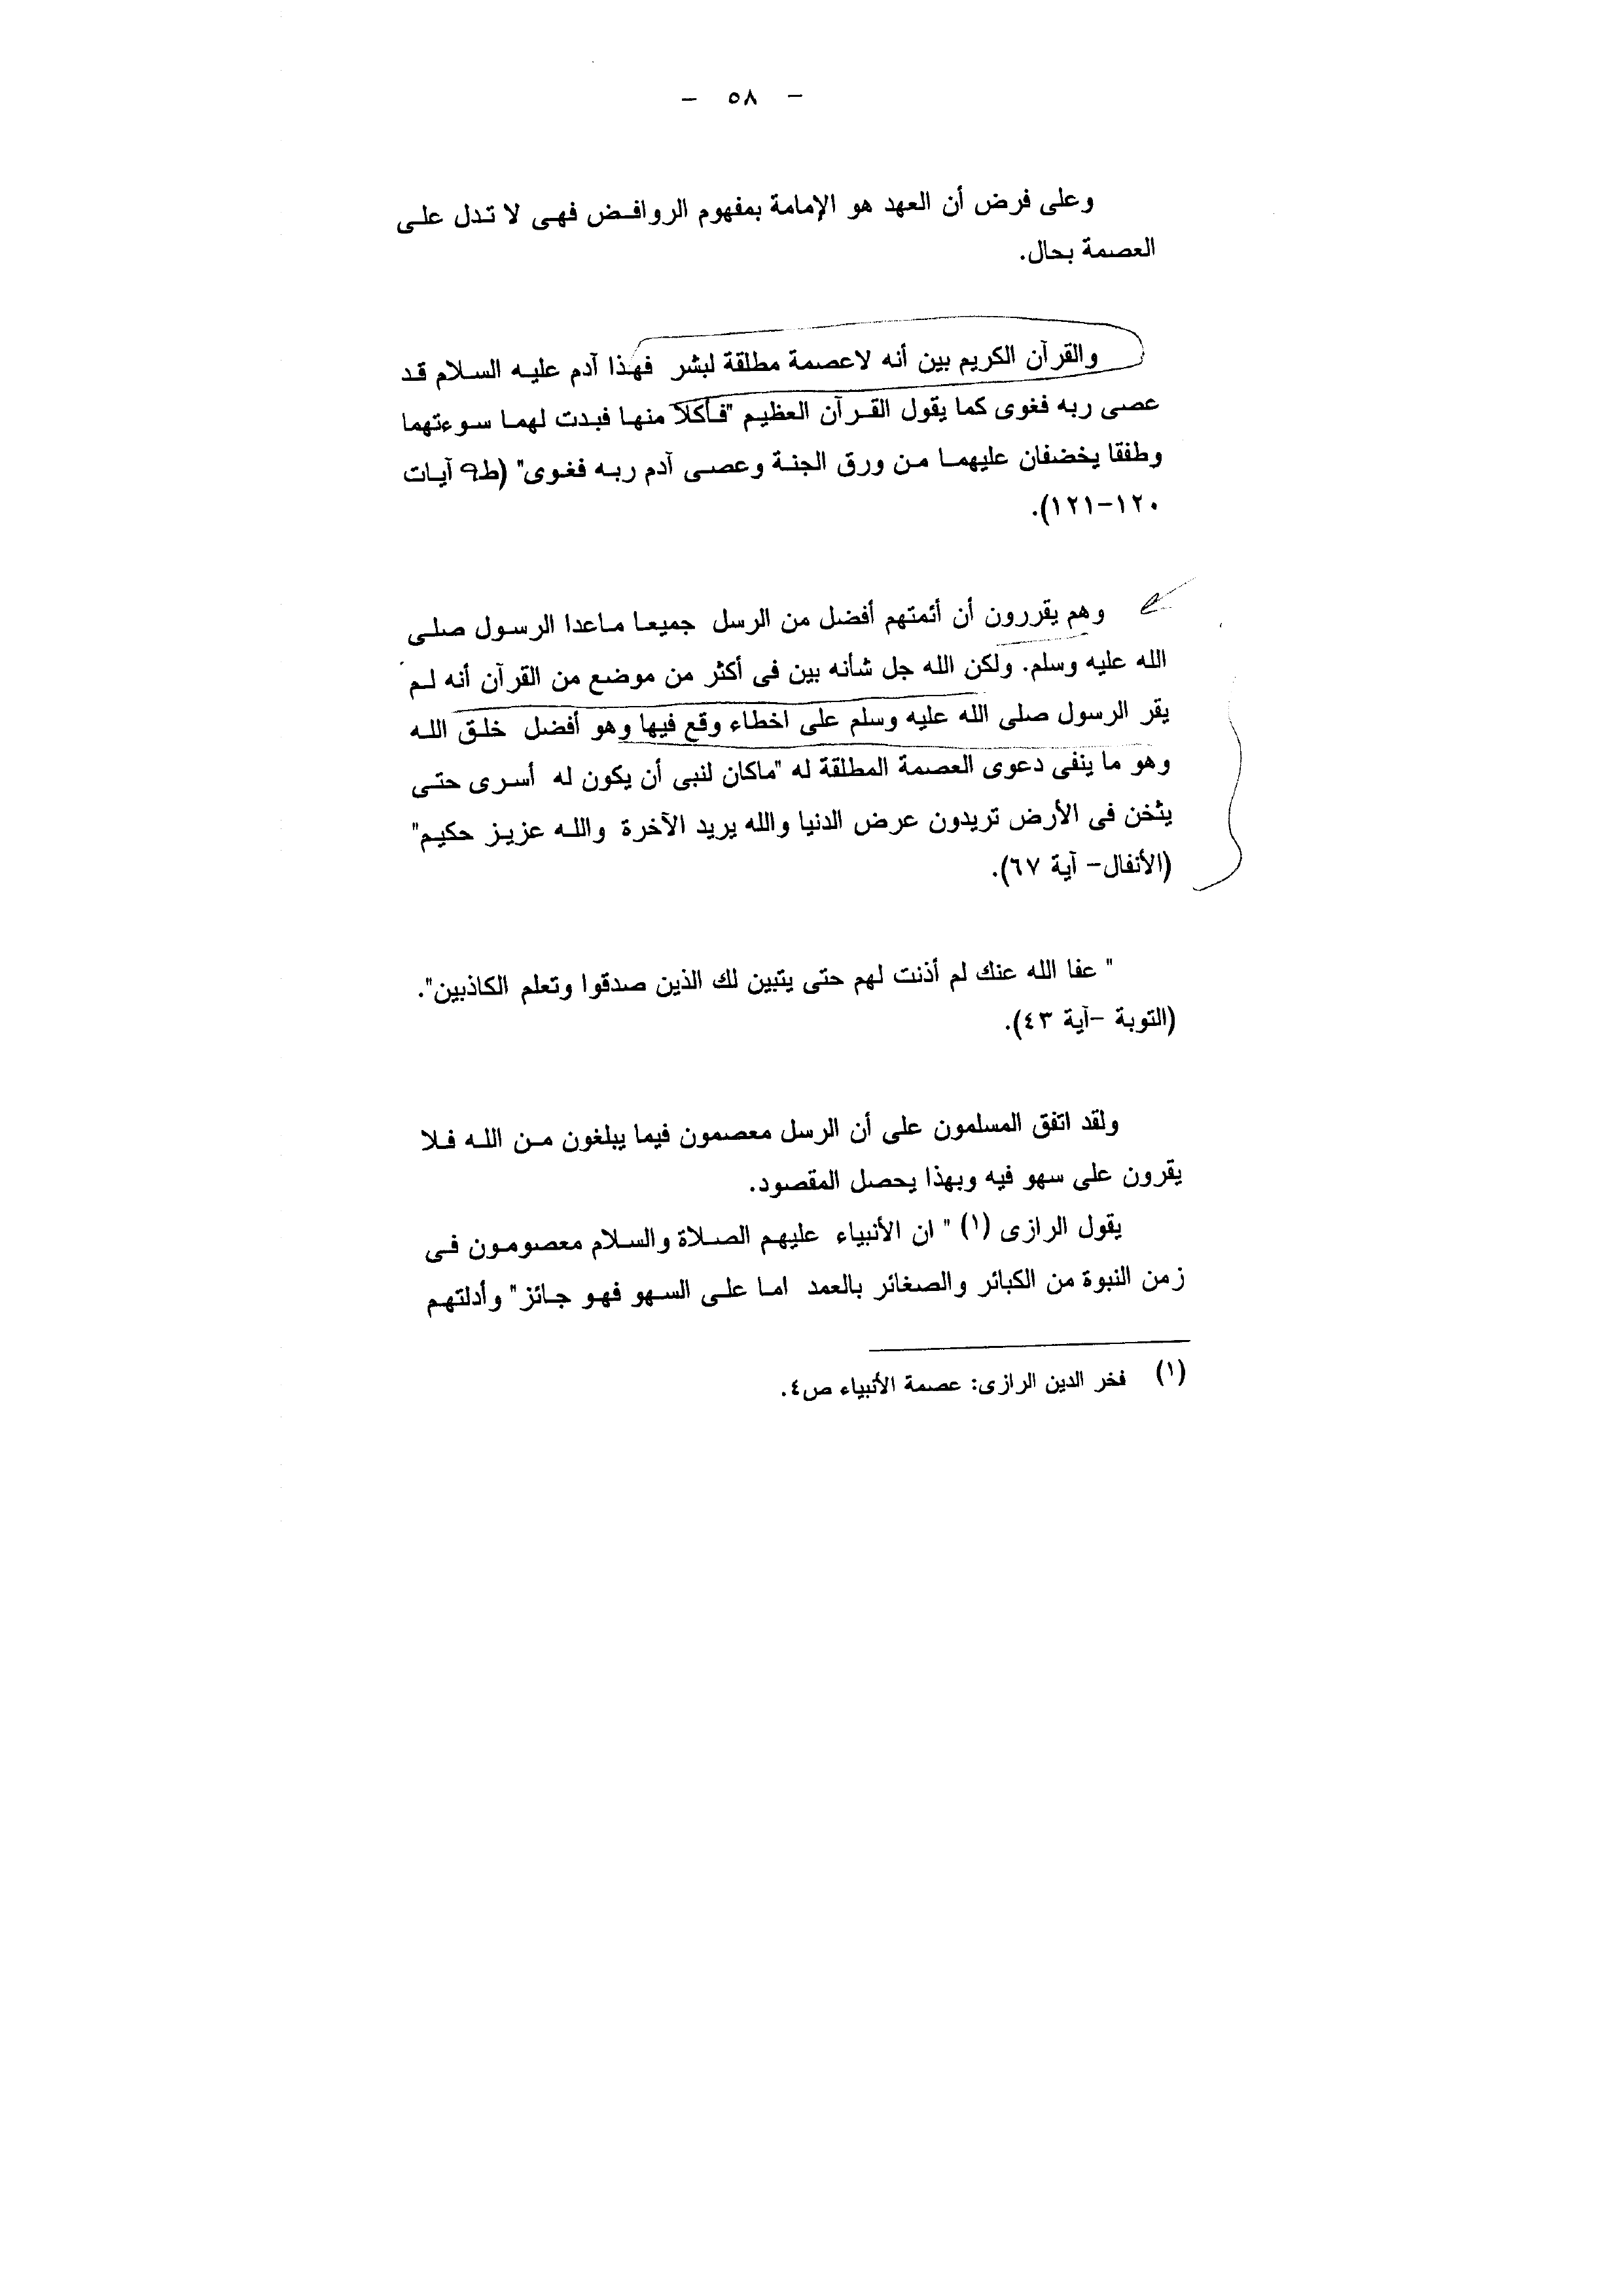 - ٥٨ -
وعلى فرض أن العهد هو الإمامة بمفهوم الروافض فهى لا تدل على
العصمة بحال.
والقرآن الكريم بين أنه لاعصمة مطلقة لبشر فهذا آدم عليه السلام قد
عصى ربه فغوى كما يقول القرآن العظيم "فأكلا منها فبدت لهما سوءتهما
وطفقا يخضفان عليهما من ورق الجنة وعصى آدم ربه فغوى" (طه آيات
١٢٠-١٢١).
وهم يقررون أن أئمتهم أفضل من الرسل جميعا ماعدا الرسول صلى
الله عليه وسلم. ولكن الله جل شأنه بين فى أكثر من موضع من القرآن أنه لم
يقر الرسول صلى الله عليه وسلم على اخطاء وقع فيها وهو أفضل خلق الله
وهو ما ينفى دعوى العصمة المطلقة له "ماكان لنبى أن يكون له أسرى حتى
يثخن فى الأرض تريدون عرض الدنيا والله يريد الآخرة والله عزيز حكيم"
(الأنفال- آية ٦٧).
" عفا الله عنك لم أذنت لهم حتى يتبين لك الذين صدقوا وتعلم الكاذبين".
(التوبة -آية ٤٣).
ولقد اتفق المسلمون على أن الرسل معصمون فيما يبلغون من الله فلا
يقرون على سهو فيه وبهذا يحصل المقصود.
يقول الرازى (١) " ان الأنبياء عليهم الصلاة والسلام معصومون فى
زمن النبوة من الكبائر والصغائر بالعمد اما على السهو فهو جائز" وأدلتهم
(١) فخر الدين الرازى: عصمة الأنبياء ص٤.